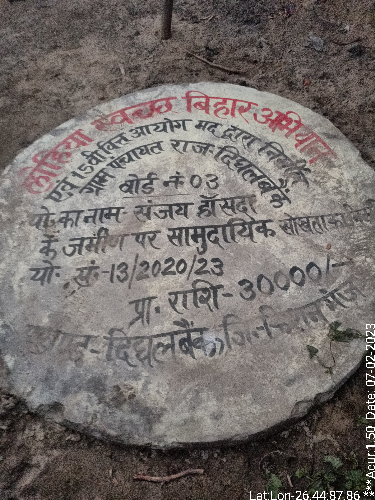 लोहिया स्वच्छ बिहार अभियान
एवं 15 वीं वित्त आयोग मद द्वारा निर्मित
ग्राम पंचायत राज दिघलबैंक
बोर्ड नं 03
यो. का नाम - संजय हाँसदा
के जमीन पर सामुदायिक सोख्ता का
यो. सं.- 13/2020/23
प्रा. राशि - 30000/-
दिघलबैंक जि.- किशनगंज
Lat:Lon-26.44:87.86 ***Acur:1.50 Date: 07-02-2023